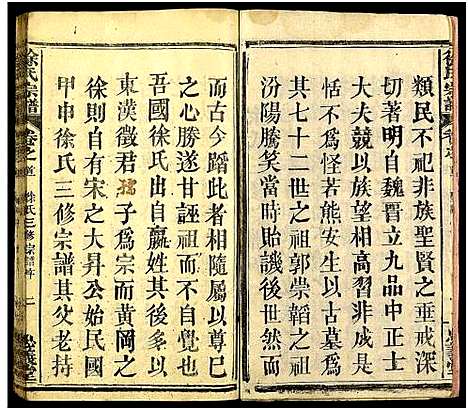 類民不祀非族聖賢之垂戒深
切著明自魏晉立九品中正士
大夫競以族望相高習非成是
恬不為怪若熊安生以古墓為
其七十二世之祖郭崇韜以子
汾陽騰笑當時貽譏後世然而
而古今蹈此者相隨屬以尊己
之心勝遂甘誣祖而不自覺也
吾國徐氏出自嬴姓其後多以
東漢徵君孺子為宗而黃岡之
徐則自有宋之大昇公始民國
甲申徐氏三修宗譜其父老持
徐氏宗譜
徐氏三修宗譜
二